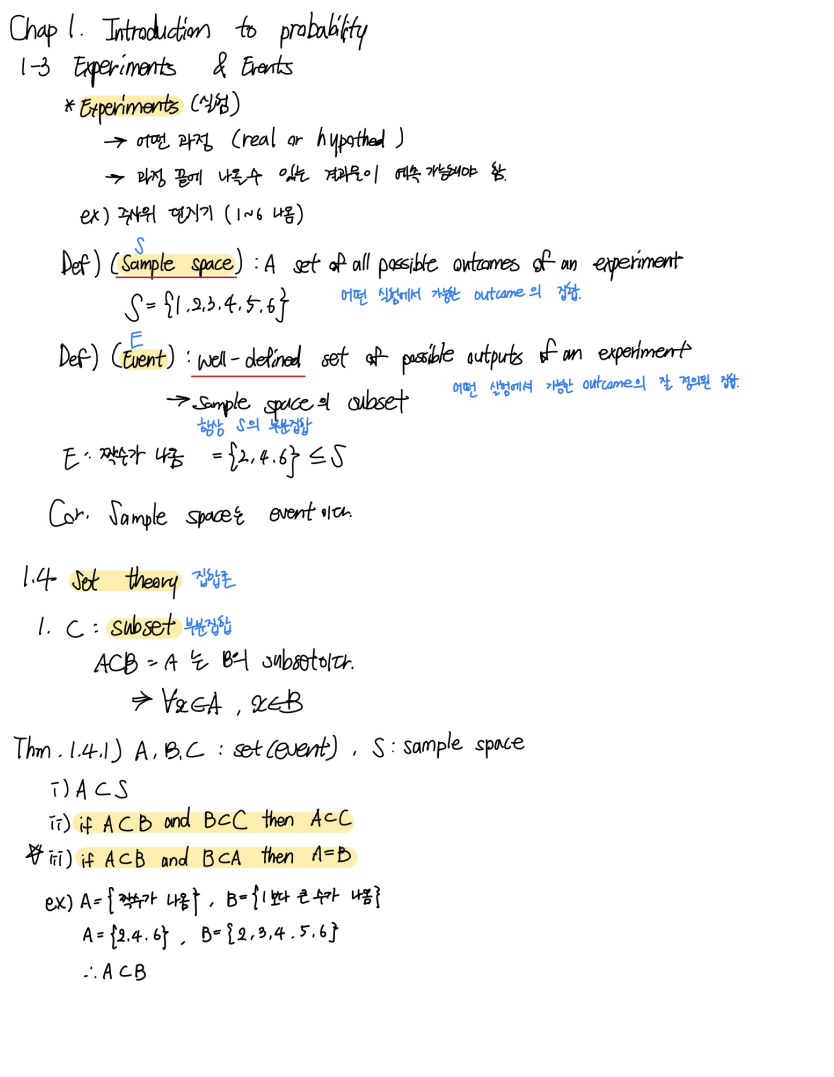 Chap 1. Introduction to probability
1-3 Experiments & Events
* Experiments (실험)
→ 어떤 과정 (real or hypothed)
→ 과정 끝에 나올 수 있는 결과물이 예측 가능해야 함.
ex) 주사위 던지기 (1~6 나옴)
S
Def) (Sample space) : A set of all possible outcomes of an experiment
S = {1.2.3.4.5.6} 어떤 실험에서 가능한 outcome의 집합.
E
Def) (Event) : well-defined set of possible outputs of an experiment
어떤 실험에서 가능한 outcome의 잘 정의된 집합.
→ Sample space의 subset
항상 S의 부분집합
E : 짝수가 나옴 = {2,4.6} ≤ S
Cor. Sample space는 event이다.
1.4 Set theory 집합론
1. ⊂ : subset 부분집합
A⊂B = A 는 B의 subset이다.
⇒ ∀x∈A , x∈B
Thm. 1.4.1) A, B, C : set (event) , S : sample space
i) A ⊂ S
ii) if A⊂B and B⊂C then A⊂C
☆ iii) if A⊂B and B⊂A then A=B
ex) A = {짝수가 나옴} , B = {1보다 큰 수가 나옴}
A = {2.4.6} , B = {2,3,4.5.6}
∴ A ⊂ B